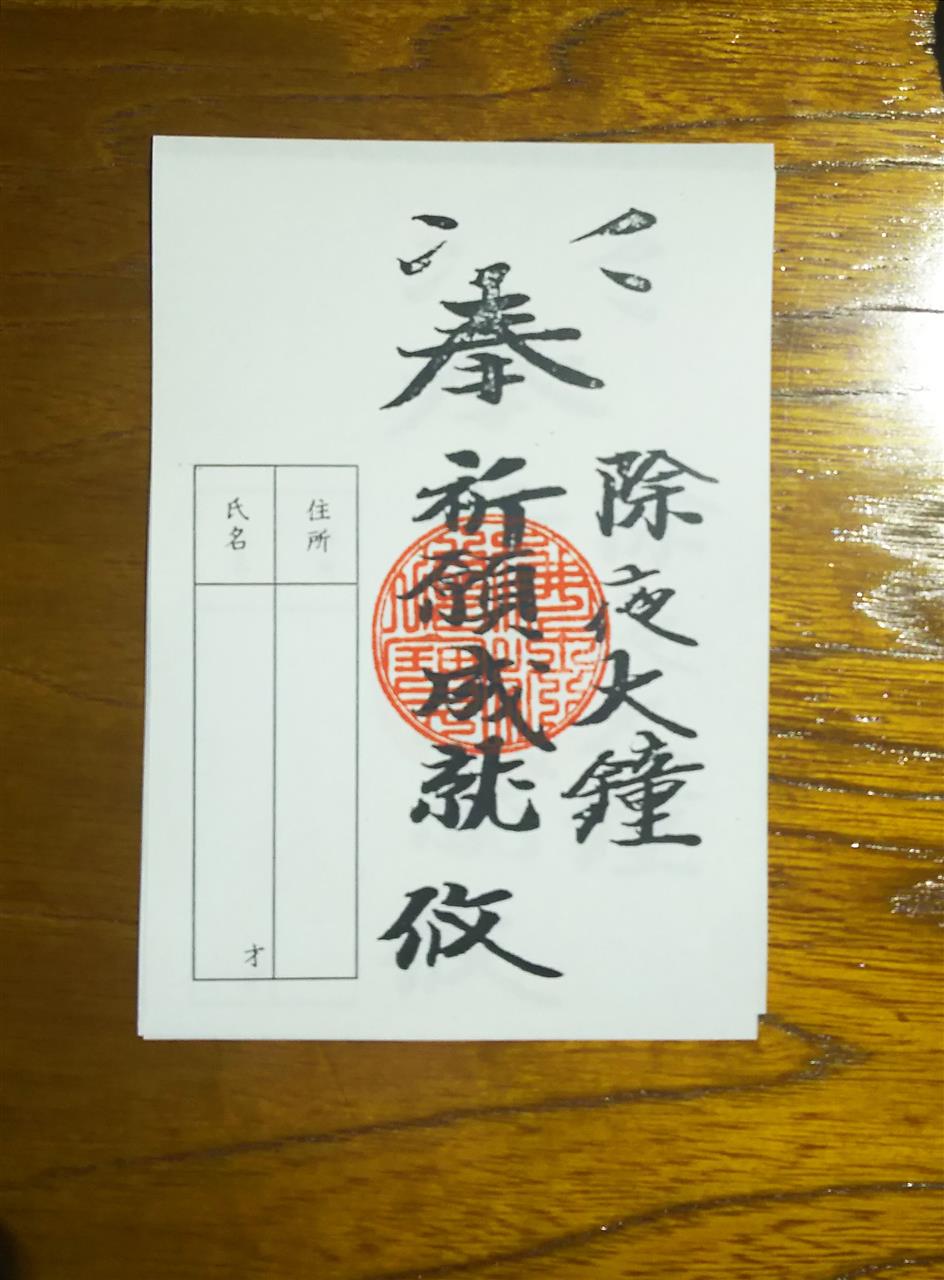 除夜大鐘
奉 祈願成就 攸
住所
氏名 才